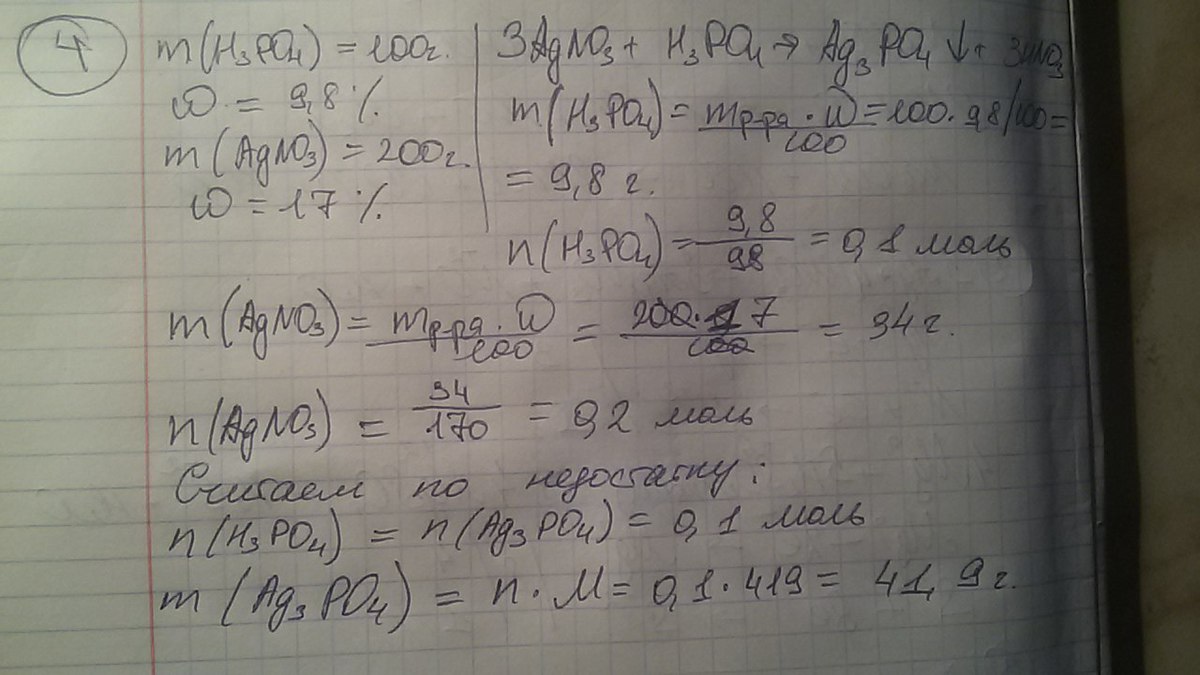 4
m(H₃PO₄) = 100г.
ω = 9,8 %.
m(AgNO₃) = 200г.
ω = 17 %.
3AgNO₃ + H₃PO₄ → Ag₃PO₄ ↓ + 3HNO₃
m(H₃PO₄) = mр-ра · ω / 100 = 100 · 9,8/100 =
= 9,8 г.
n(H₃PO₄) = 9,8 / 98 = 0,1 моль
m(AgNO₃) = mр-ра · ω / 100 = 200 · 17 / 100 = 34 г.
n(AgNO₃) = 34 / 170 = 0,2 моль
Считаем по недостатку:
n(H₃PO₄) = n(Ag₃PO₄) = 0,1 моль
m(Ag₃PO₄) = n · M = 0,1 · 419 = 41,9 г.